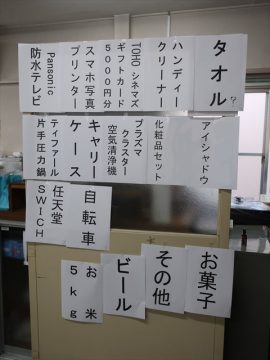 タオル?
ハンディー
クリーナー
TOHOシネマズ
ギフトカード
5000円分
スマホ写真
プリンター
Pansonic
防水テレビ
アイシャドウ
化粧品セット
プラズマ
クラスター
空気清浄機
キャリー
ケース
ティファール
片手圧力鍋
自転車
任天堂
SWICH
お菓子
その他
ビール
お米
5kg